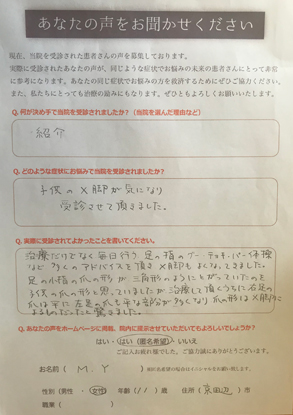 あなたの声をお聞かせください
現在、当院を受診された患者さんの声を募集しております。
実際に受診されたあなたの声が、同じような症状でお悩みの未来の患者さんにとって非常
に参考になります。あなたと同じ症状でお悩みの方を救済するためにぜひご協力ください。
また、私たちにとっても治療の励みにもなります。ぜひともよろしくお願いいたします。
Q. 何が決め手で当院を受診されましたか?(当院を選んだ理由など)
紹介
Q. どのような症状にお悩みで当院を受診されましたか?
子供のX脚が気になり
受診させて頂きました。
Q. 実際に受診されてよかったことを書いてください。
治療だけでなく毎日行う足の指のグーチョキパー体操
など多くのアドバイスを頂きX脚もよくなってきました。
足の小指の爪の形が三角形のようにとがっていたのを
子供の爪の形と思っていましたが治療して頂くうちに右足の
爪は平に左足の爪も平な部分が多くなり爪の形はX脚に
よるものだったと驚きました。
Q. あなたの声をホームページに掲載、院内に掲示させていただいてもよろしいでしょうか?
はい・はい(匿名希望)・いいえ
ご記入お疲れ様でした。ご協力誠にありがとうございます。
お名前( M.Y )
性別(男性・女性) 年齢(11)歳 住所(京田辺)市
職業( )